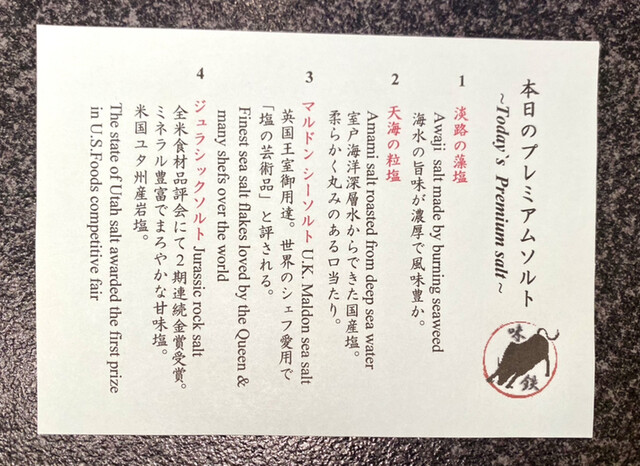 本日のプレミアムソルト
~Today's Premium salt~
味鉄
1 淡路の藻塩
Awaji salt made by burning seaweed
海水の旨味が濃厚で風味豊か。
2 天海の粒塩
Amami salt roasted from deep sea water
室戸海洋深層水からできた国産塩。
柔らかく丸みのある口当たり。
3 マルドン シーソルト U.K. Maldon sea salt
英国王室御用達。世界のシェフ愛用で
「塩の芸術品」と評される。
Finest sea salt flakes loved by the Queen &
many shefs over the world
4 ジュラシックソルト Jurassic rock salt
全米食材品評会にて2期連続金賞受賞。
ミネラル豊富でまろやかな甘味塩。
米国ユタ州産岩塩。
The state of Utah salt awarded the first prize
in U.S.Foods competitive fair